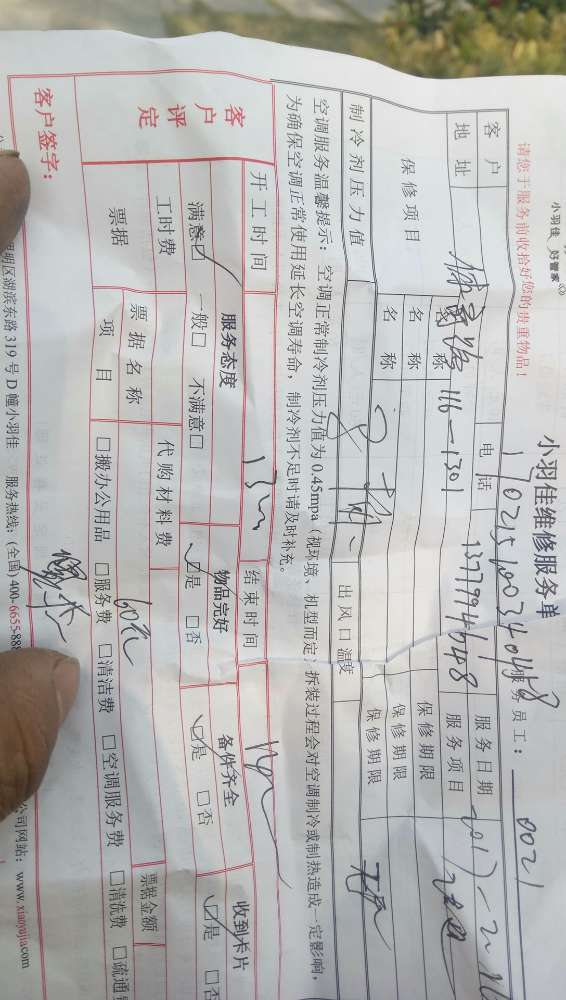 小羽佳 好管家
小羽佳维修服务单
请您于服务前收拾好您的贵重物品！
服务员工： 0021
客户 电话 13779946648 服务日期
地址 116-1301 服务项目
保修项目 名称 保修期限
名称 保修期限
名称 保修期限
制冷剂压力值 出风口温度
空调服务温馨提示：空调正常制冷剂压力值为0.45mpa（视环境、机型而定）拆装过程会对空调制冷或制热造成一定影响，
为确保空调正常使用延长空调寿命，制冷剂不足时请及时补充。
开工时间 结束时间
客户评定 服务态度 物品完好 备件齐全 收到卡片
满意☑ 一般□ 不满意□ ☑是 □否 ☑是 □否 ☑是 □否
工时费 代购材料费 60元
票据 票据名称 票据金额
项目 □搬办公用品 □服务费 □清洁费 □空调服务费 □清洗费 □疏通
客户签字：
明区湖滨东路319号D幢小羽佳 服务热线：(全国) 400-6655-888 公司网站：www.xiaoyujia.com